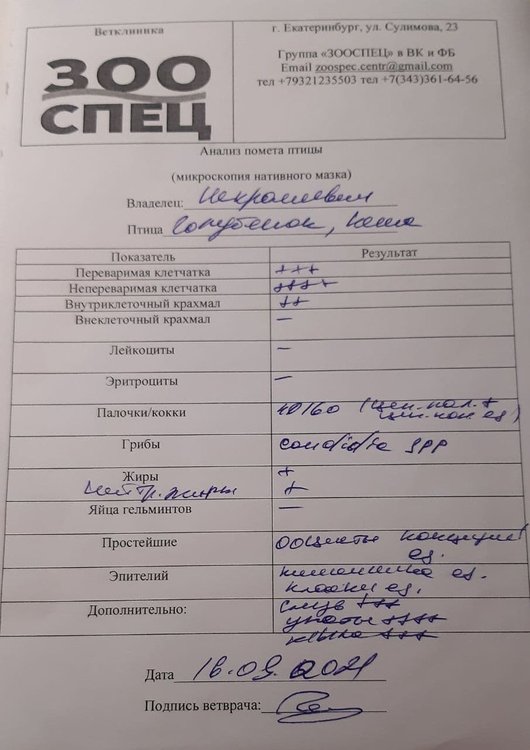 Ветклиника
ЗОО
СПЕЦ
г. Екатеринбург, ул. Сулимова, 23
Группа «ЗООСПЕЦ» в ВК и ФБ
Email zoospec.centr@gmail.com
тел +79321235503 тел +7(343)361-64-56
Анализ помета птицы
(микроскопия нативного мазка)
Владелец:
Птица Голубенок, Кеша
Показатель Результат
Переваримая клетчатка +++
Непереваримая клетчатка ++++
Внутриклеточный крахмал ++
Внеклеточный крахмал —
Лейкоциты —
Эритроциты —
Палочки/кокки 40/60
Грибы candidta spp
Жиры +
Нейтр. жиры +
Яйца гельминтов —
Простейшие ооцисты кокцидий
ед.
Эпителий кишечника ед.
клоаки ед.
Дополнительно: слизь +++
ураты ++++
+++
Дата 16.09.2021
Подпись ветврача: